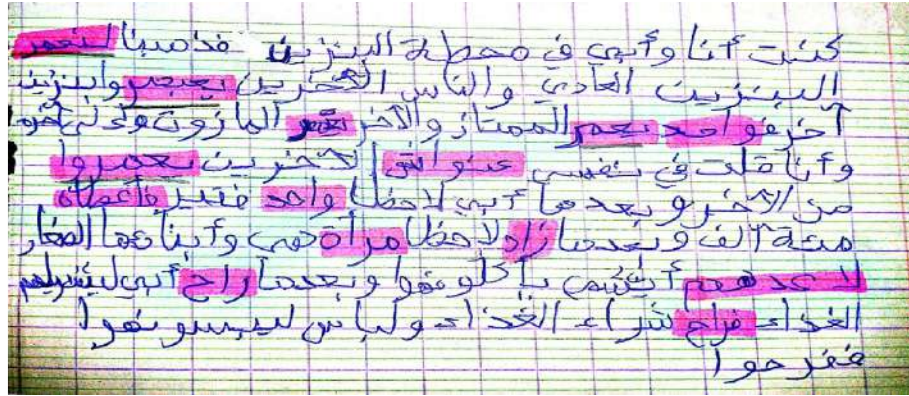 كنت أنا وأبي في محطة البنزين فذهبنا لنعمر
البنزين العادي والناس الآخرين يعيمر وابنزين
آخر فواحد يعمر الممتاز والآخر يعمر المازوت
وأنا قلت في نفسي عنواش الآخرين يعميروا
من الآخر وبعدها أبي لاحظا واحد فقير فأعطاه
مئة ألف وبعدها زاد لاحظا مرأة هي وأبناءها الصغار
لا عدهم أيشي يأكلونهوا وبعدها راح أبي ليشريلهم
الغذاء فراح شراء الغذاء ولباس ليبسونهوا
ففرحوا